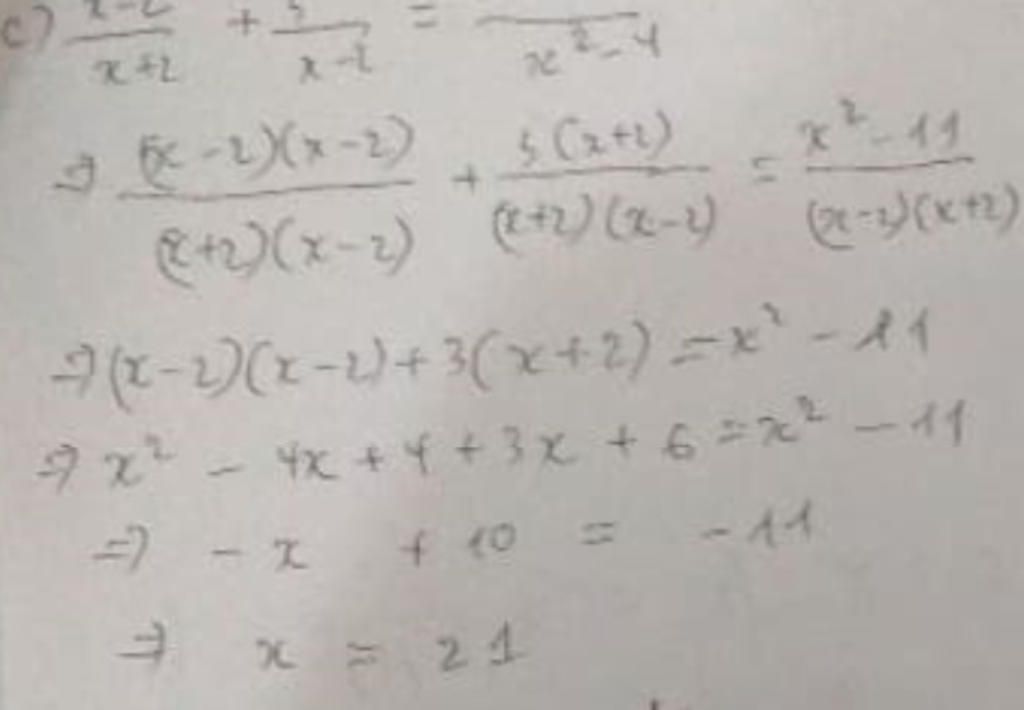 c) x-2/x+2 + 3/x-2 = /x²-4
⇒ (x-2)(x-2)/(x+2)(x-2) + 3(x+2)/(x+2)(x-2) = x²-11/(x-2)(x+2)
⇒ (x-2)(x-2)+3(x+2) = x²-11
⇒ x² - 4x + 4 + 3x + 6 = x² - 11
⇒ - x + 10 = - 11
⇒ x = 21